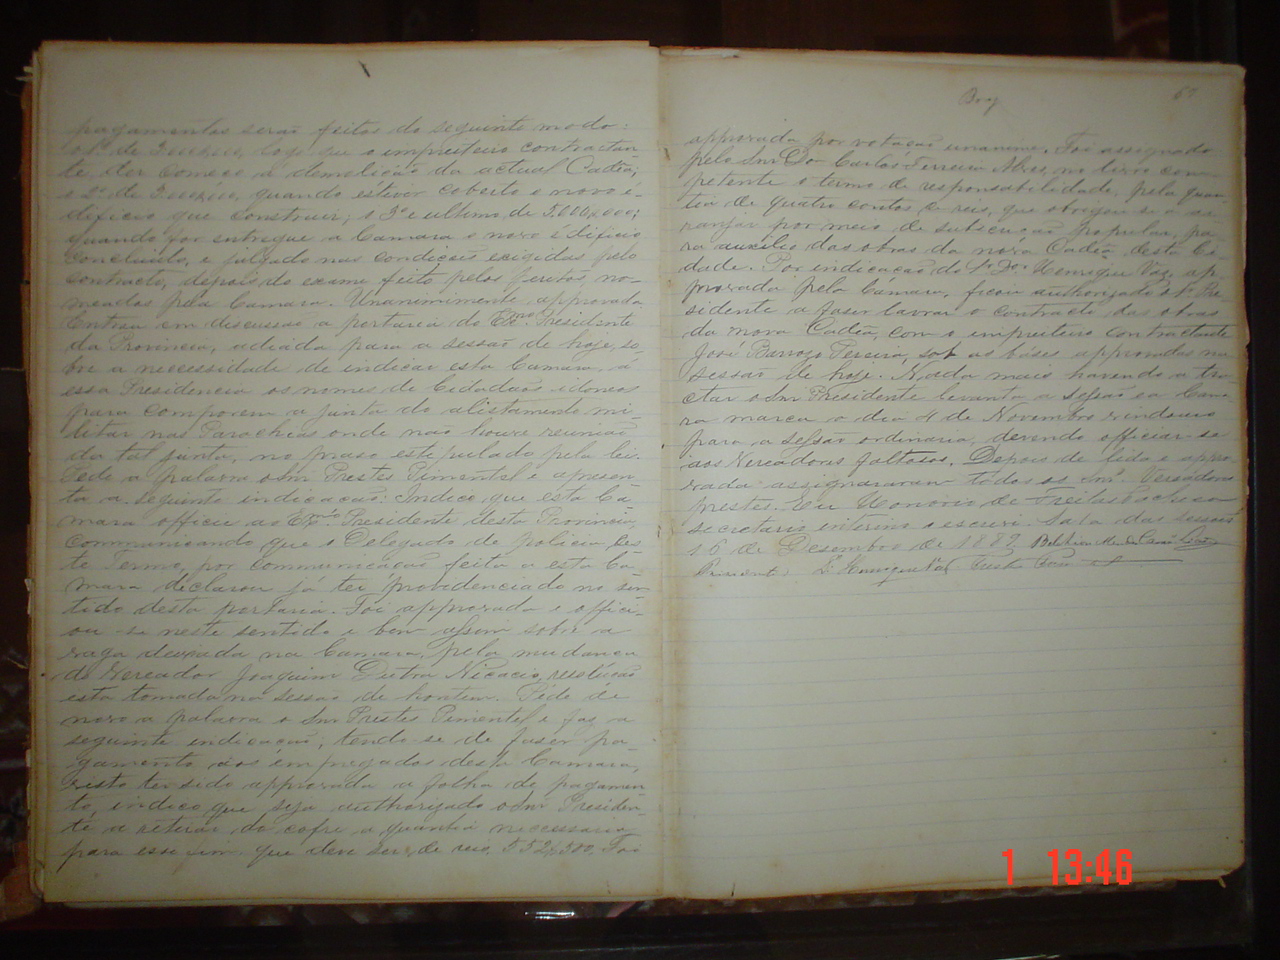 pagamentos serão feitos do seguinte modo:
o 1º de logo que o impreiteiro contractan-
te, der começo a demolição da actual Cadêa,
o 2º de quando estiver coberto o novo é-
dificio que construir; o 3º e ultimo de 5.000,000;
quando for entregue a Camara o novo édificio
concluido, e julgado nas condicões exigidas pelo
contracto, depois do exame feito pelos peritos no-
meados pela Camara. Unanimimente approvada
Entrou em discussão a portaria do Exmo. Presidente
da Provincia, adiada para a sessão de hoje, so-
bre a necessidade de indicar esta Camara, á
essa Presidencia os nomes de Cidadãos idoneos
para comporem a junta do alistamento mi-
litar nas Parochias onde não houve reunião
da tal junta, no praso estipulado pela lei.
Pede a palavra o Snr Prestes Pimentel e apresen-
ta a seguinte indicacão: Indico, que esta Ca-
mara officie ao Exmo. Presidente desta Provincia,
communicando que o Delegado de policia des-
te Termo, por communicacão feita a esta Ca-
mara declarou já ter providenciado no sen-
tido desta portaria. Foi approvada e offici-
ou-se neste sentido e bem assim sobre a
vaga deixada na Camara, pela mudanca
do Vereador Joaquim Dutra Nicacio, resolucão
esta tomada na sessão de hontem. Pede de
novo a palavra o Snr Prestes Pimentel e faz a
seguinte indicacão; tendo-se de faser pa-
gamento aos émpregados desta Camara,
visto ter sido approvada a folha de pagamen-
to, indico que seja authorizado o Snr Presiden-
te a retirar do cofre a quantia necessaria
para esse fim que deve ser de reis, 552,500. Foi
67
approvada por votacão unanime. Foi assignado
pelo Snr Dor Carlos Ferreira Alves, no livro com-
petente o termo de responsabilidade, pela quan-
tia de quatro contos de reis, que obrigou-se a
por meio de subscripção popular, pa-
ra auxilio das obras da nova Cadêa desta Ci-
dade. Por indicacão do Sr Dor Henrique Vaz, ap-
provada pela Camara, ficou authorizado o Sr Pre-
sidente a faser lavrar o contracto das obras
da nova Cadêa, com o impreiteiro contractante
José Barrozo Pereira, sob as bases approvadas na
sessão de hoje. Nada mais havendo a tra-
ctar o Snr Presidente levanta a sessão e a Cama-
ra marca o dia 4 de Novembro vindouro
para a sessão ordinaria, devendo officiar-se
aos Vereadores faltosos. Depois de lida e appro-
vada assignararam todos os Snrs Vereadores
Eu Honorio de Freitas
secretario interino o escrevi. Sala das sessões
16 de Desembro de 1882
Presidente. Henrique Vaz
1 13:46